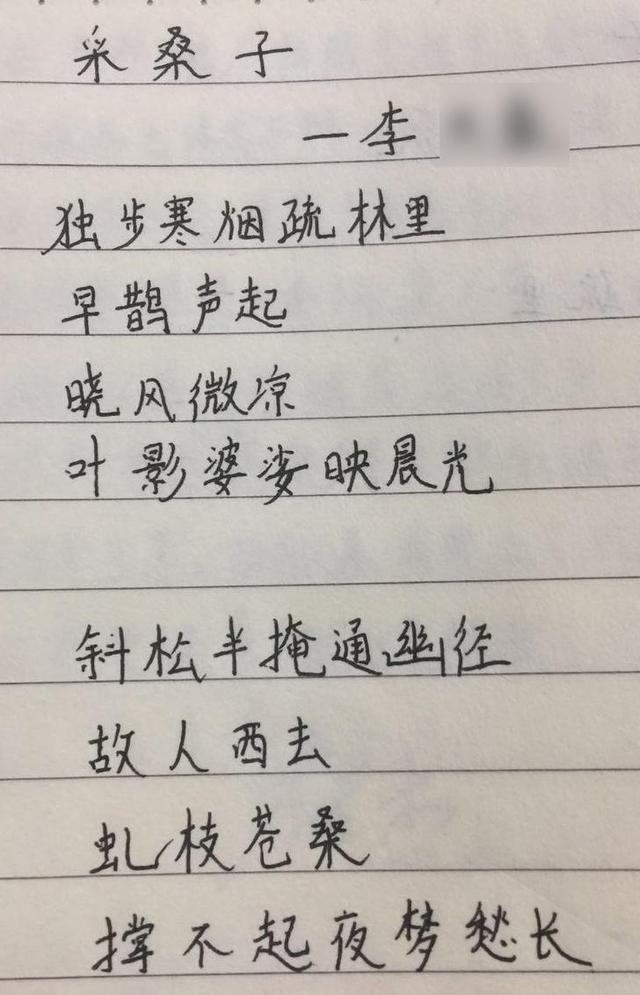 采桑子
一李
独步寒烟疏林里
早鹊声起
晓风微凉
叶影婆娑映晨光
斜松半掩通幽径
故人西去
虬枝苍桑
撑不起夜梦愁长